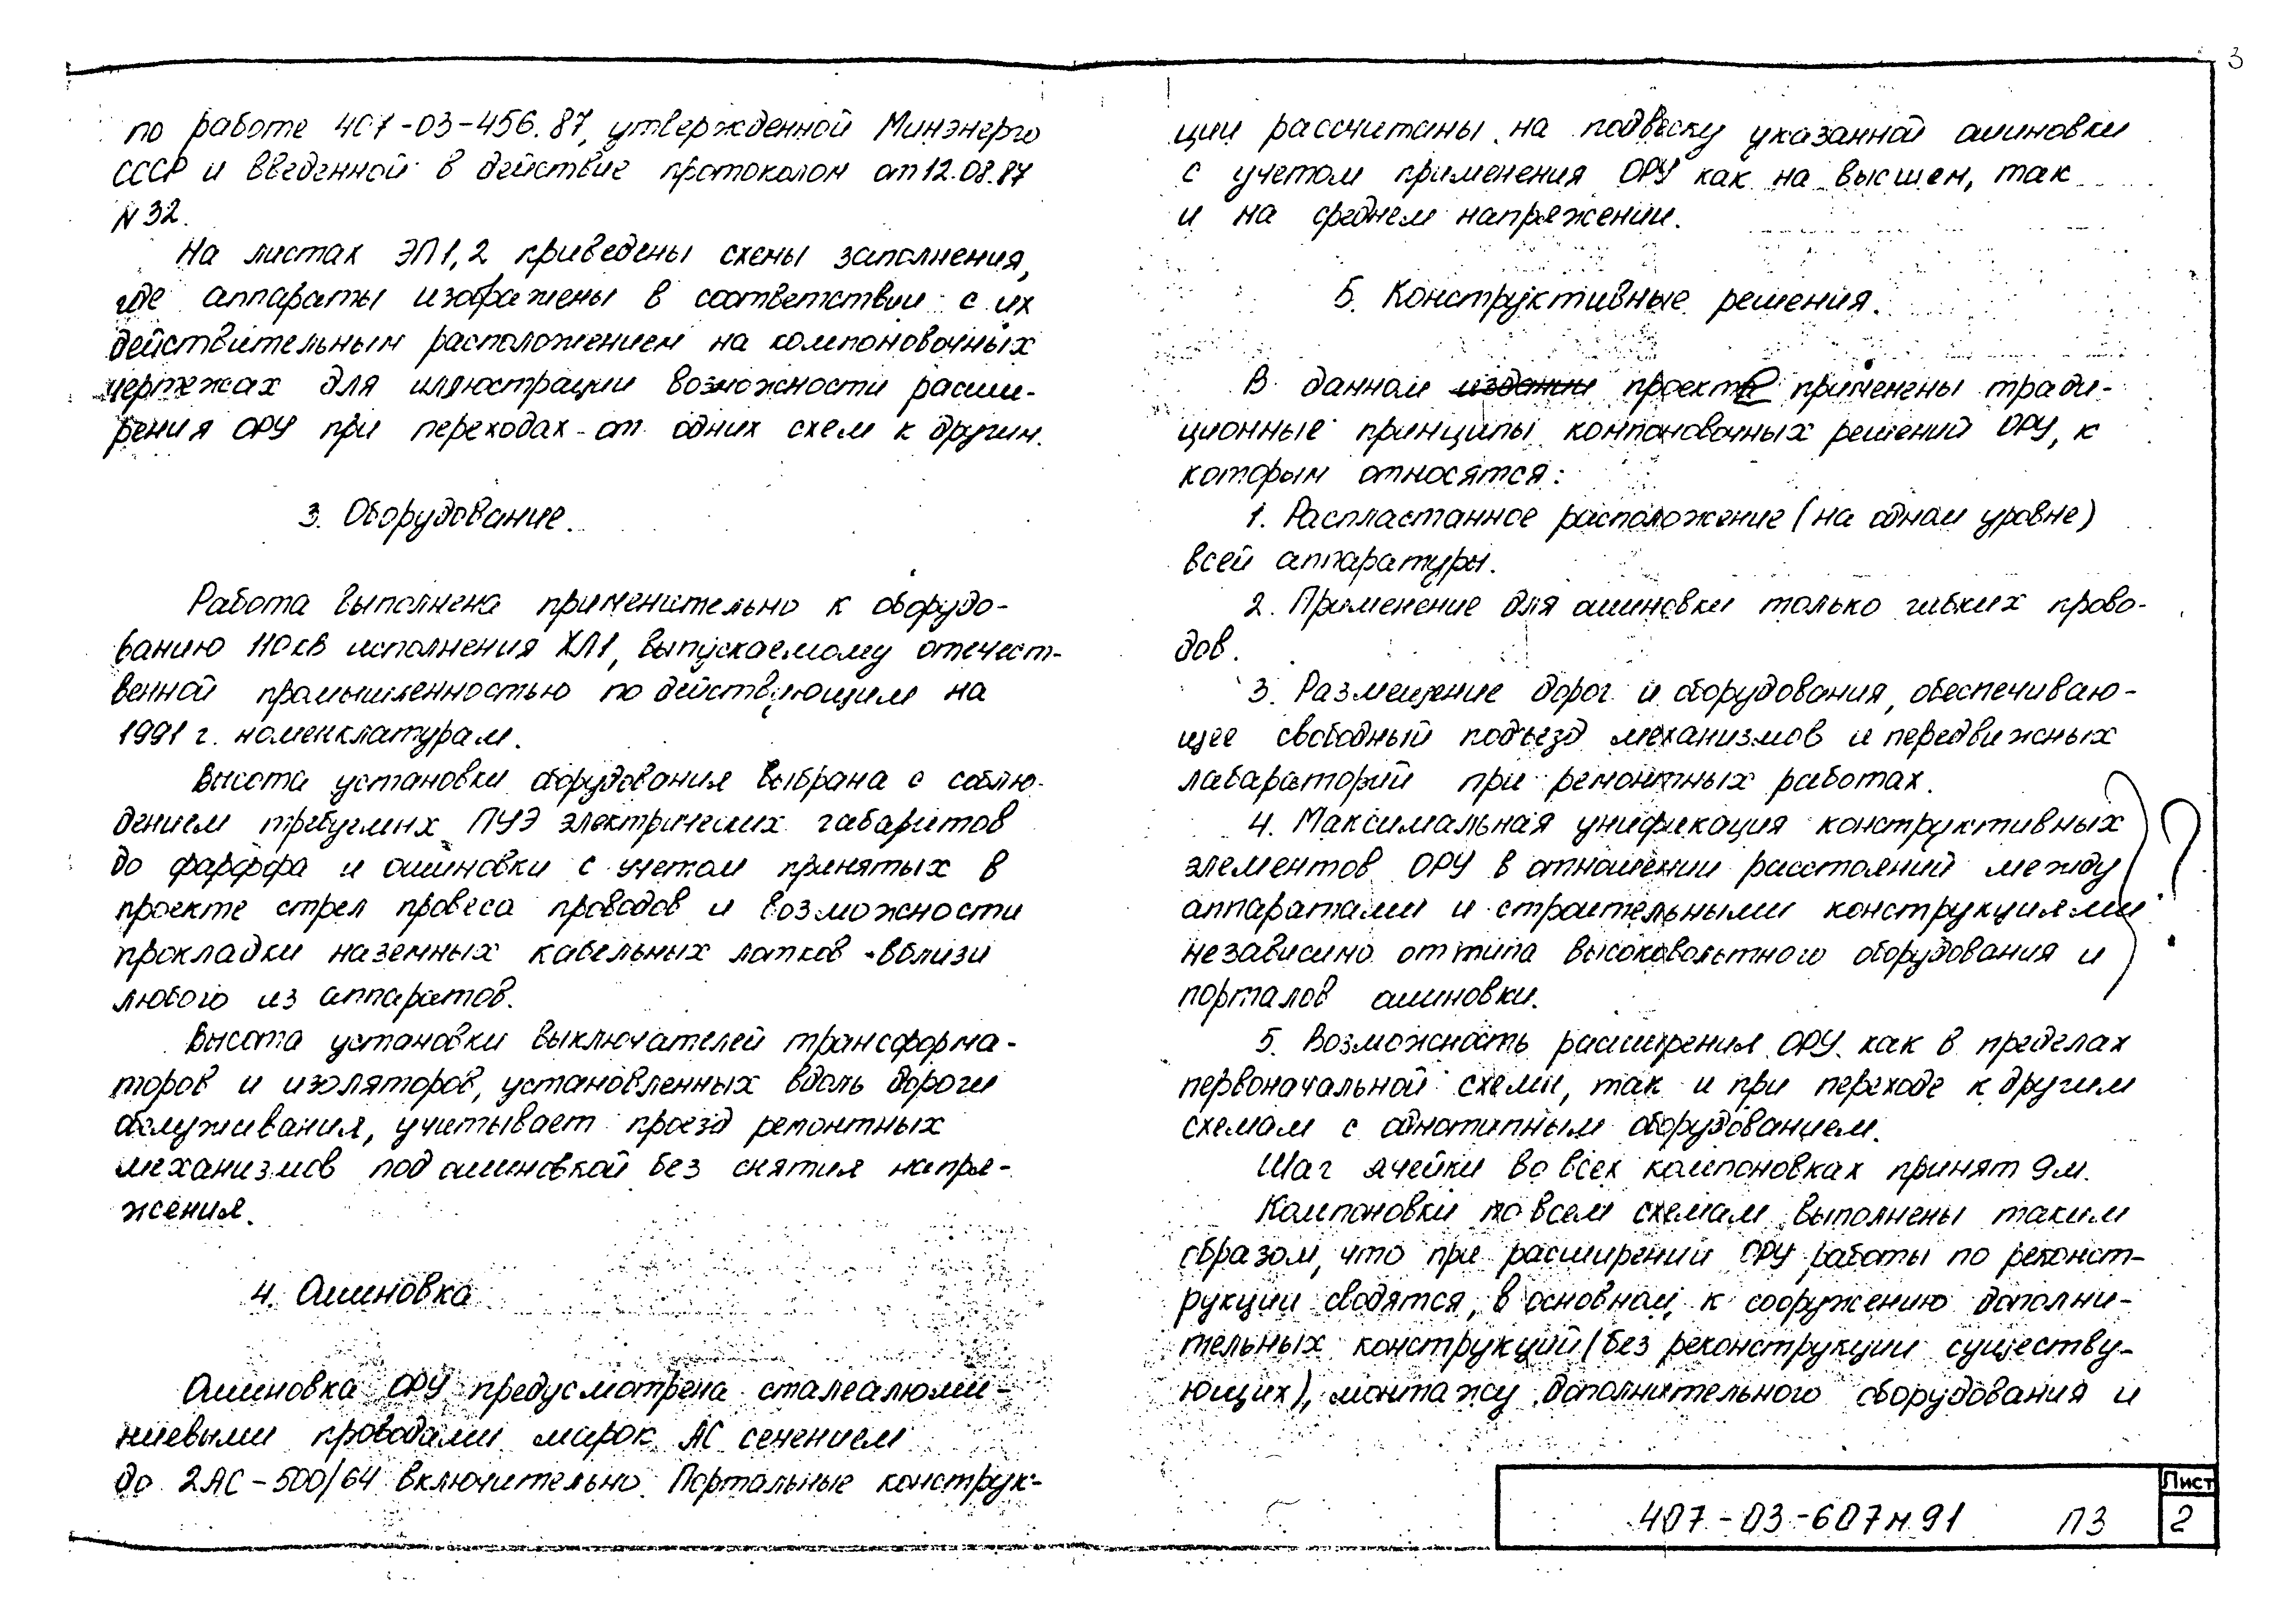 3
по работе 407-03-456.87, утвержденной Минэнерго
СССР и введенной в действие протоколом от 12.08.87
N 32.
На листах ЭП1,2 приведены схемы заполнения,
где аппараты изображены в соответствии с их
действительным расположением на компоновочных
чертежах для иллюстрации возможности расши-
рения ОРУ при переходах от одних схем к другим.
3. Оборудование.
Работа выполнена применительно к оборудо-
ванию 110кВ исполнения ХЛ1, выпускаемому отечест-
венной промышленностью по действующим на
1991 г. номенклатурам.
Высота установки оборудования выбрана с соблю-
дением требуемых ПУЭ электрических габаритов
до фарфора и ошиновки с учетом принятых в
проекте стрел провеса проводов и возможности
прокладки наземных кабельных лотков вблизи
любого из аппаратов.
Высота установки выключателей трансформа-
торов и изоляторов, установленных вдоль дороги
обслуживания, учитывает проезд ремонтных
механизмов под ошиновкой без снятия напря-
жения.
4. Ошиновка
Ошиновка ОРУ предусмотрена сталеалюми-
ниевыми проводами марок АС сечением
до 2АС-500/64 включительно. Портальные конструк-
ции рассчитаны на подвеску указанной ошиновки
с учетом применения ОРУ как на высшем, так
и на среднем напряжении.
5. Конструктивные решения.
В данном издании проекте применены тради-
ционные принципы компоновочных решений ОРУ, к
которым относятся:
1. Распластанное расположение (на одном уровне)
всей аппаратуры.
2. Применение для ошиновки только гибких прово-
дов.
3. Размещение дорог и оборудования, обеспечиваю-
щее свободный подъезд механизмов и передвижных
лабораторий при ремонтных работах.
4. Максимальная унификация конструктивных
элементов ОРУ в отношении расстояний между
аппаратами и строительными конструкциями
независимо от типа высоковольтного оборудования и
порталов ошиновки.
?
5. Возможность расширения ОРУ как в пределах
первоначальной схемы, так и при переходе к другим
схемам с однотипным оборудованием.
Шаг ячейки во всех компоновках принят 9м.
Компоновки по всем схемам выполнены таким
образом, что при расширении ОРУ работы по реконст-
рукции сводятся, в основном, к сооружению дополни-
тельных конструкций (без реконструкции существу-
ющих), монтажу дополнительного оборудования и
407-03-607м.91 ПЗ
Лист
2